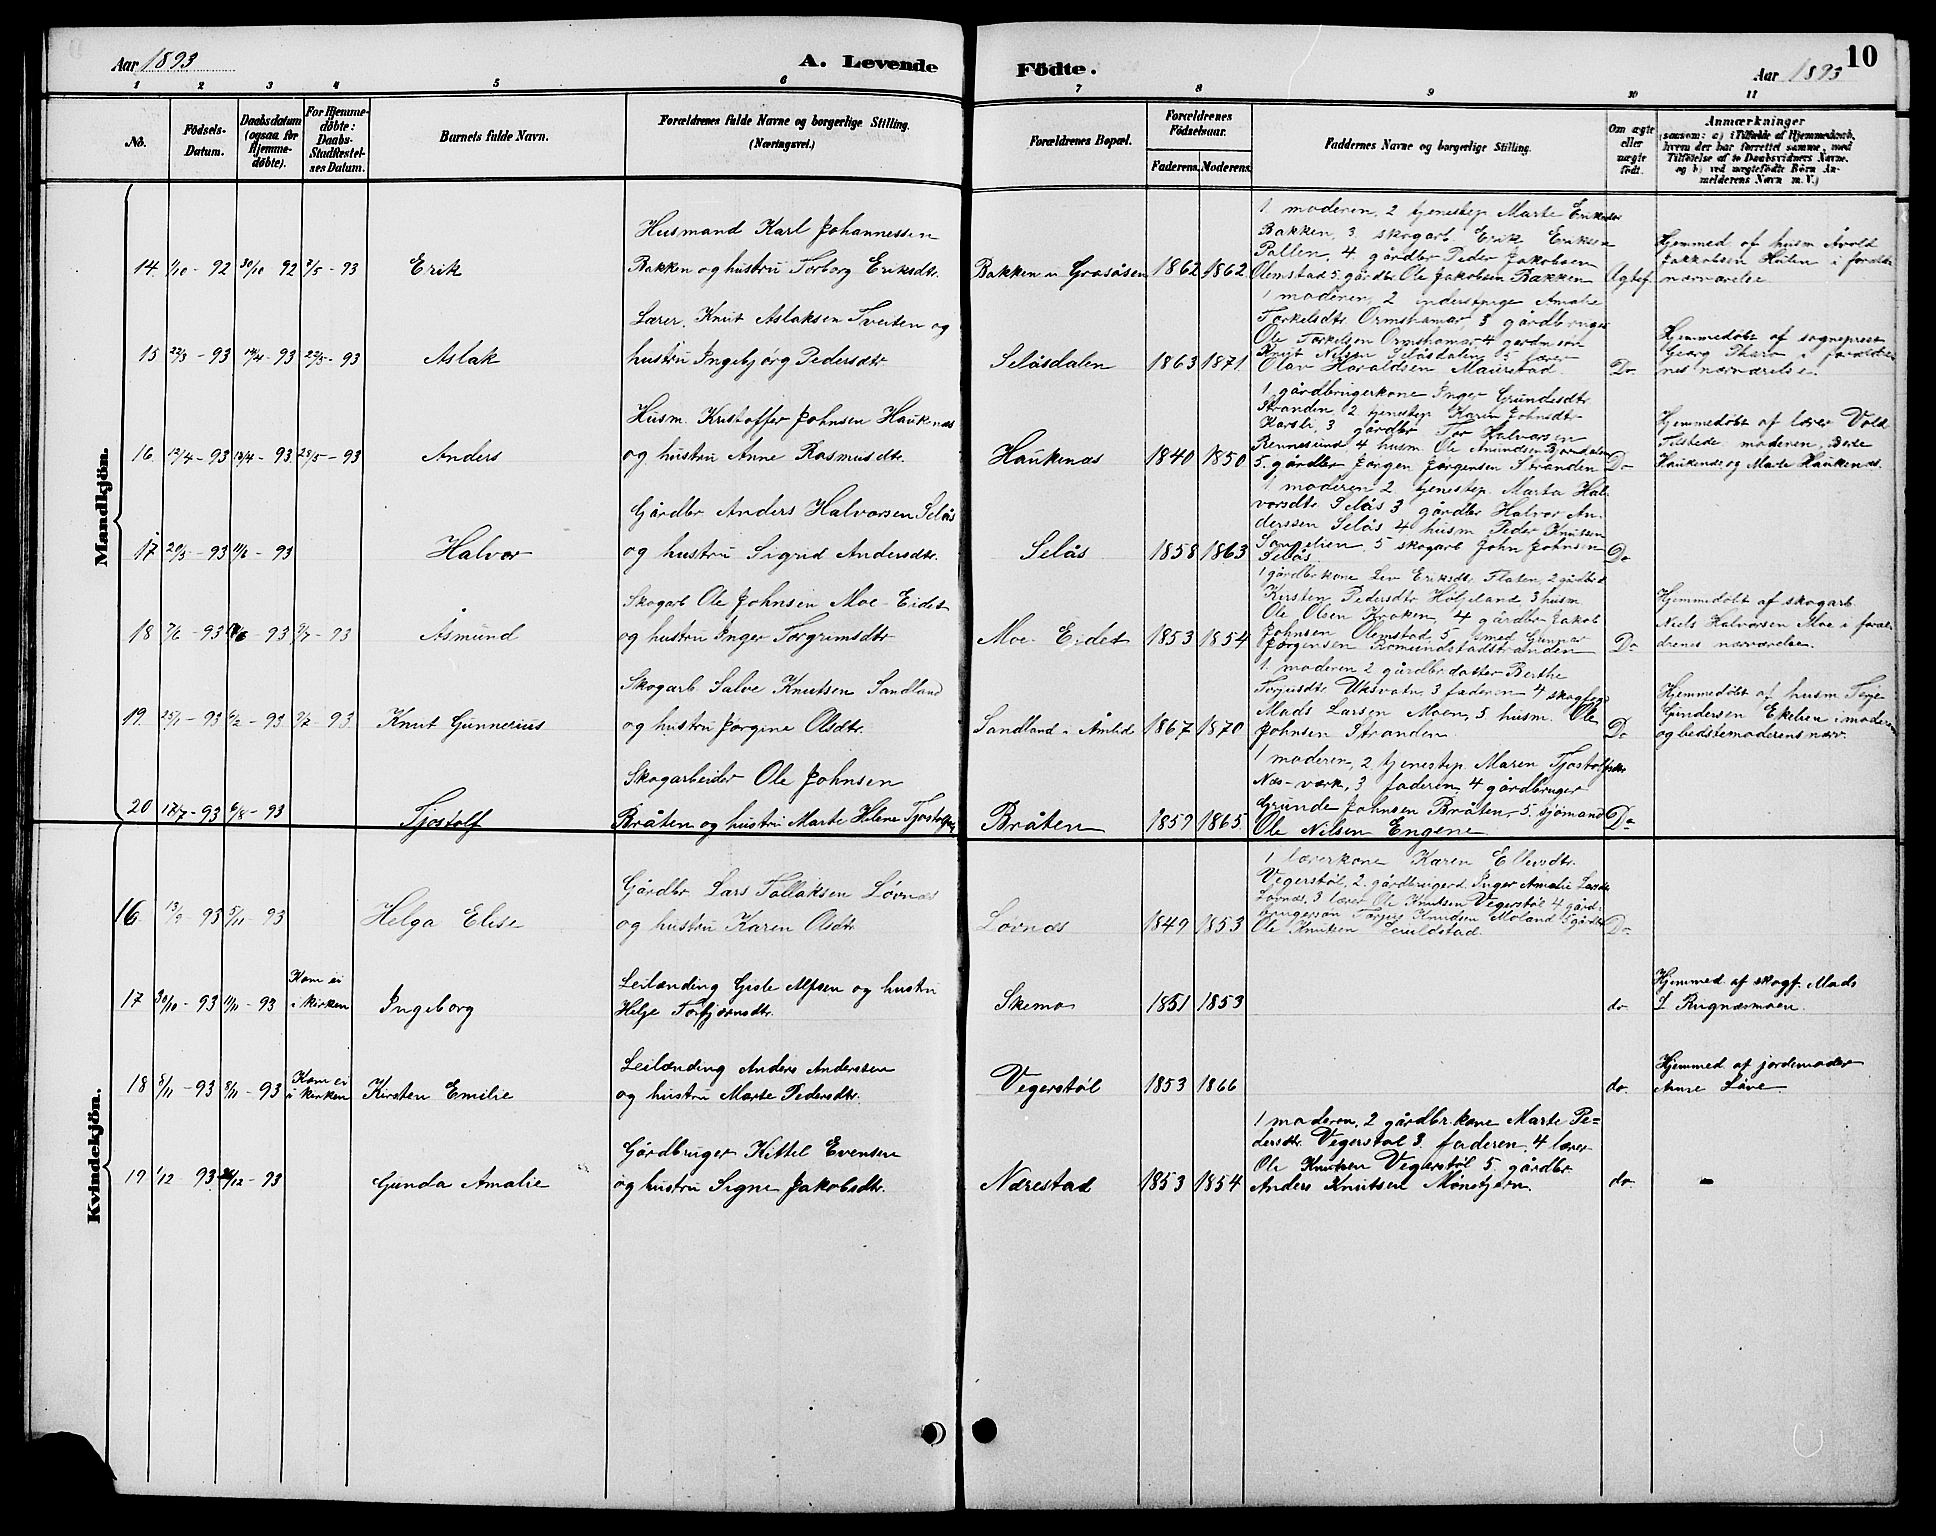 Aar 1893
A. Levende
Födte.
Aar 1893
10
1 2 3 4 5 6 7 8 9 10 11
No.
Födsels-
Datum.
Daabsdatum
(ogsaa for
Hjemme-
döbte).
For Hjemme-
döbte:
Daabs-
Stadfæstel-
ses Datum.
Barnets fulde Navn.
Forældrenes fulde Navne og borgerlige Stilling.
(Næringsvei.)
Forældrenes Bopæl.
Forældrenes
Födselsaar.
Faderens. Moderens.
Faddernes Navne og borgerlige Stilling.
Om ægte
eller
uægte
födt.
Anmærkninger
(saasom: a) i Tilfælde af Hjemmedaab,
hvem der har forrettet samme, med
Tilföielse af to Daabsvidners Navne.
og b) ved uægtefödte Börn An-
melderens Navn m. V.)
Mandkjön.
14 1/10 - 92 30/10 92 2/5 - 93 Erik
Husmand Karl Johannessen
Bakken og hustru Torborg Eriksdtr.
Bakken u Grasåsen 1862 1862
1 moderen, 2 tjenestep Marte Eriksdtr
Bakken, 3 skogarb Erik Eriksen
Pallen, 4. gårdbr Peder Jakobsen
Olemstad 5. gårdbr Ole Jakobsen Bakken
Ægtef.
Hjemmed af husm Åvold
Jakkobsen Hulen i foreldr
nærværelse
15 22/3 - 93 14/4 - 93 22/5 - 93 Aslak
Lærer. Knut Aslaksen Tveiten og
hustru Ingebjørg Pedersdtr.
Selåsdalen 1863 1871
1 moderen, 2 inderstpige Amalie
Torkelsdtr. Ormshamar, 3 gårdbruger
Ole Torkelsen Ormshamar 4 gardmson
Knut Nilsen Selåsdalen 5 lærer
Olav Haraldsen Maurstad.
Do.
Hjemmedøbt af sogneprest
Georg i forældre
nes nærværelse.
16 12/4 - 93 13/4 - 93. 22/5 - 93 Anders
Husm. Kristoffer Johnsen Haukenæs
og hustru Anne Rasmusdtr.
Haukenæs 1840 1850
1 gårdbrugerkone Inger Grundesdtr
Stranden, 2 tjenestep Karen Johnsdtr
Karsli, 3 gårdbr Tor Halvorsen
Rennesund, 4 husm Ole Anundsen Bjordalen
5. gårdbr Jørgen Jørgensen Stranden
Do
Hjemmedøbt af lærer Vold
Tilstede moderen, Berte
Haukenæs og Marte Haukenæs.
17 20/5 - 93 11/6 - 93 Halvor
Gårdbr Anders Halvorsen Selås
og hustru Sigrid Andersdtr.
Selås 1858 1863
1 moderen 2 tjenestep. Marta Hal-
vorsdtr Selås 3 gårdbr Halvor An-
derssen Selås 4 husm Peder Knutsen
Songelien, 5 skogarb John Johnsen
Selås
Do
18 7/6 - 93 93 2/7 - 93 Åsmund
Skogarb Ole Johnsen Moe-Eidet
og hustru Inger Torgrimsdtr
Moe-Eidet 1853 1854
1 gårdbrkone Liv Eriksdtr Flaten, 2 gårdbrd
Kirsten Pedersdtr Høljeland 3 husm
Ole Olsen Kroken, 4 gårdbr Jakob
Johnsen Olemstad 5 smed Gunnar
Jørgensen Romundstadstranden
Do
Hjemmedøbt af skogarb
Niels Halvorsen Moe i foræl-
drenes nærværelse.
19. 25/1 - 93 6/2 - 93 93. Knut Gunnerius
Skogarb. Salve Knutsen Sandland
og hustru Jorgine Olsdtr.
Sandland i Åmlid 1867 1870
1. moderen 2 gårdbr. datter Berthe
Torjusdtr Uksvatn, 3 faderen 4 skogfog
Mads Larsen Moen, 5 husm. Ole
Johnsen Stranden.
Do
Hjemmedøbt af husm Terje
Gundersen Ekelien i moderen
og bedstemoderens nærv.
20 17/7 - 93 6/8 - 93 Tjøstolf
Skogarbeider Ole Johnsen
Bråten og hustru Marte Helene Tjøstolfsdtr
Bråten 1859 1865
1 moderen, 2 tjenestep. Maren Tjostolfsdtr
Næs-værk, 3 faderen 4 gårdbruger
Grunde Johnsen Bråten, 5. sjömand
Ole Nilsen Engene
Do
Kvindekjön.
16 13/9 93 5/11 - 93 Helga Elise
Gårdbr. Lars Tallaksen Løvnæs
og hustru Karen Olsdtr
Løvnæs 1849 1853
1 lærerkone Karen Ellevsdtr.
Vegerstøl, 2. gårdbrugerd. Inger Amalie Larsdtr
Løvnæs, 3 lærer Ole Knutsen Vegerstøl 4 gård-
brugersøn Torjus Knudsen Moland 5 gårdbr
Ole Knutsen
Do
17 30/10 - 93 11/11 - 93
Kom ei
i kirken
Ingeborg
Leilænding Giste Alfsen og hustru
Helge Torbjørnsdtr.
Skemo 1851 1853
do.
Hjemmed af skogf. Mads
L Rugnæsmoen.
18 8/11 - 93 8/11 - 93
Kom ei
i kirken
Kirsten Emilie
Leilænding Anders Anderssen
og hustru Marte Pedersdtr.
Vegerstøl 1853 1866
do.
Hjemmed af jordemoder
Anne Løve.
19 1/12 93 26/12 - 93 Gunda Amalie
Gårdbruger Kittel Evensen
og hustru Signe Jakobsdtr.
Nærestad 1853 1854
1 moderen, 2 gårdbr.kone Marte Pe-
dersdtr. Vegerstøl 3. faderen, 4 lærer
Ole Knutsen Vegerstøl 5. gårdbr
Anders Knutsen Mønstjøn.
do. -